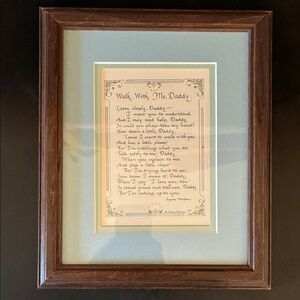 Walk With Me, Daddy
Listen closely, Daddy—
I want you to understand.
And I may need help, Daddy,
So could you please take my hand?
Slow down a little, Daddy,
'Cause I want to walk with you
And be a little closer
For I'm watching what you do.
Talk softly to me, Daddy,
When you explain to me
And stop a little closer
For I'm trying hard to
you know I mean it, Daddy,
When I say "I love you," too.
So stand proud and tall now, Daddy,
For I'm looking up to you.